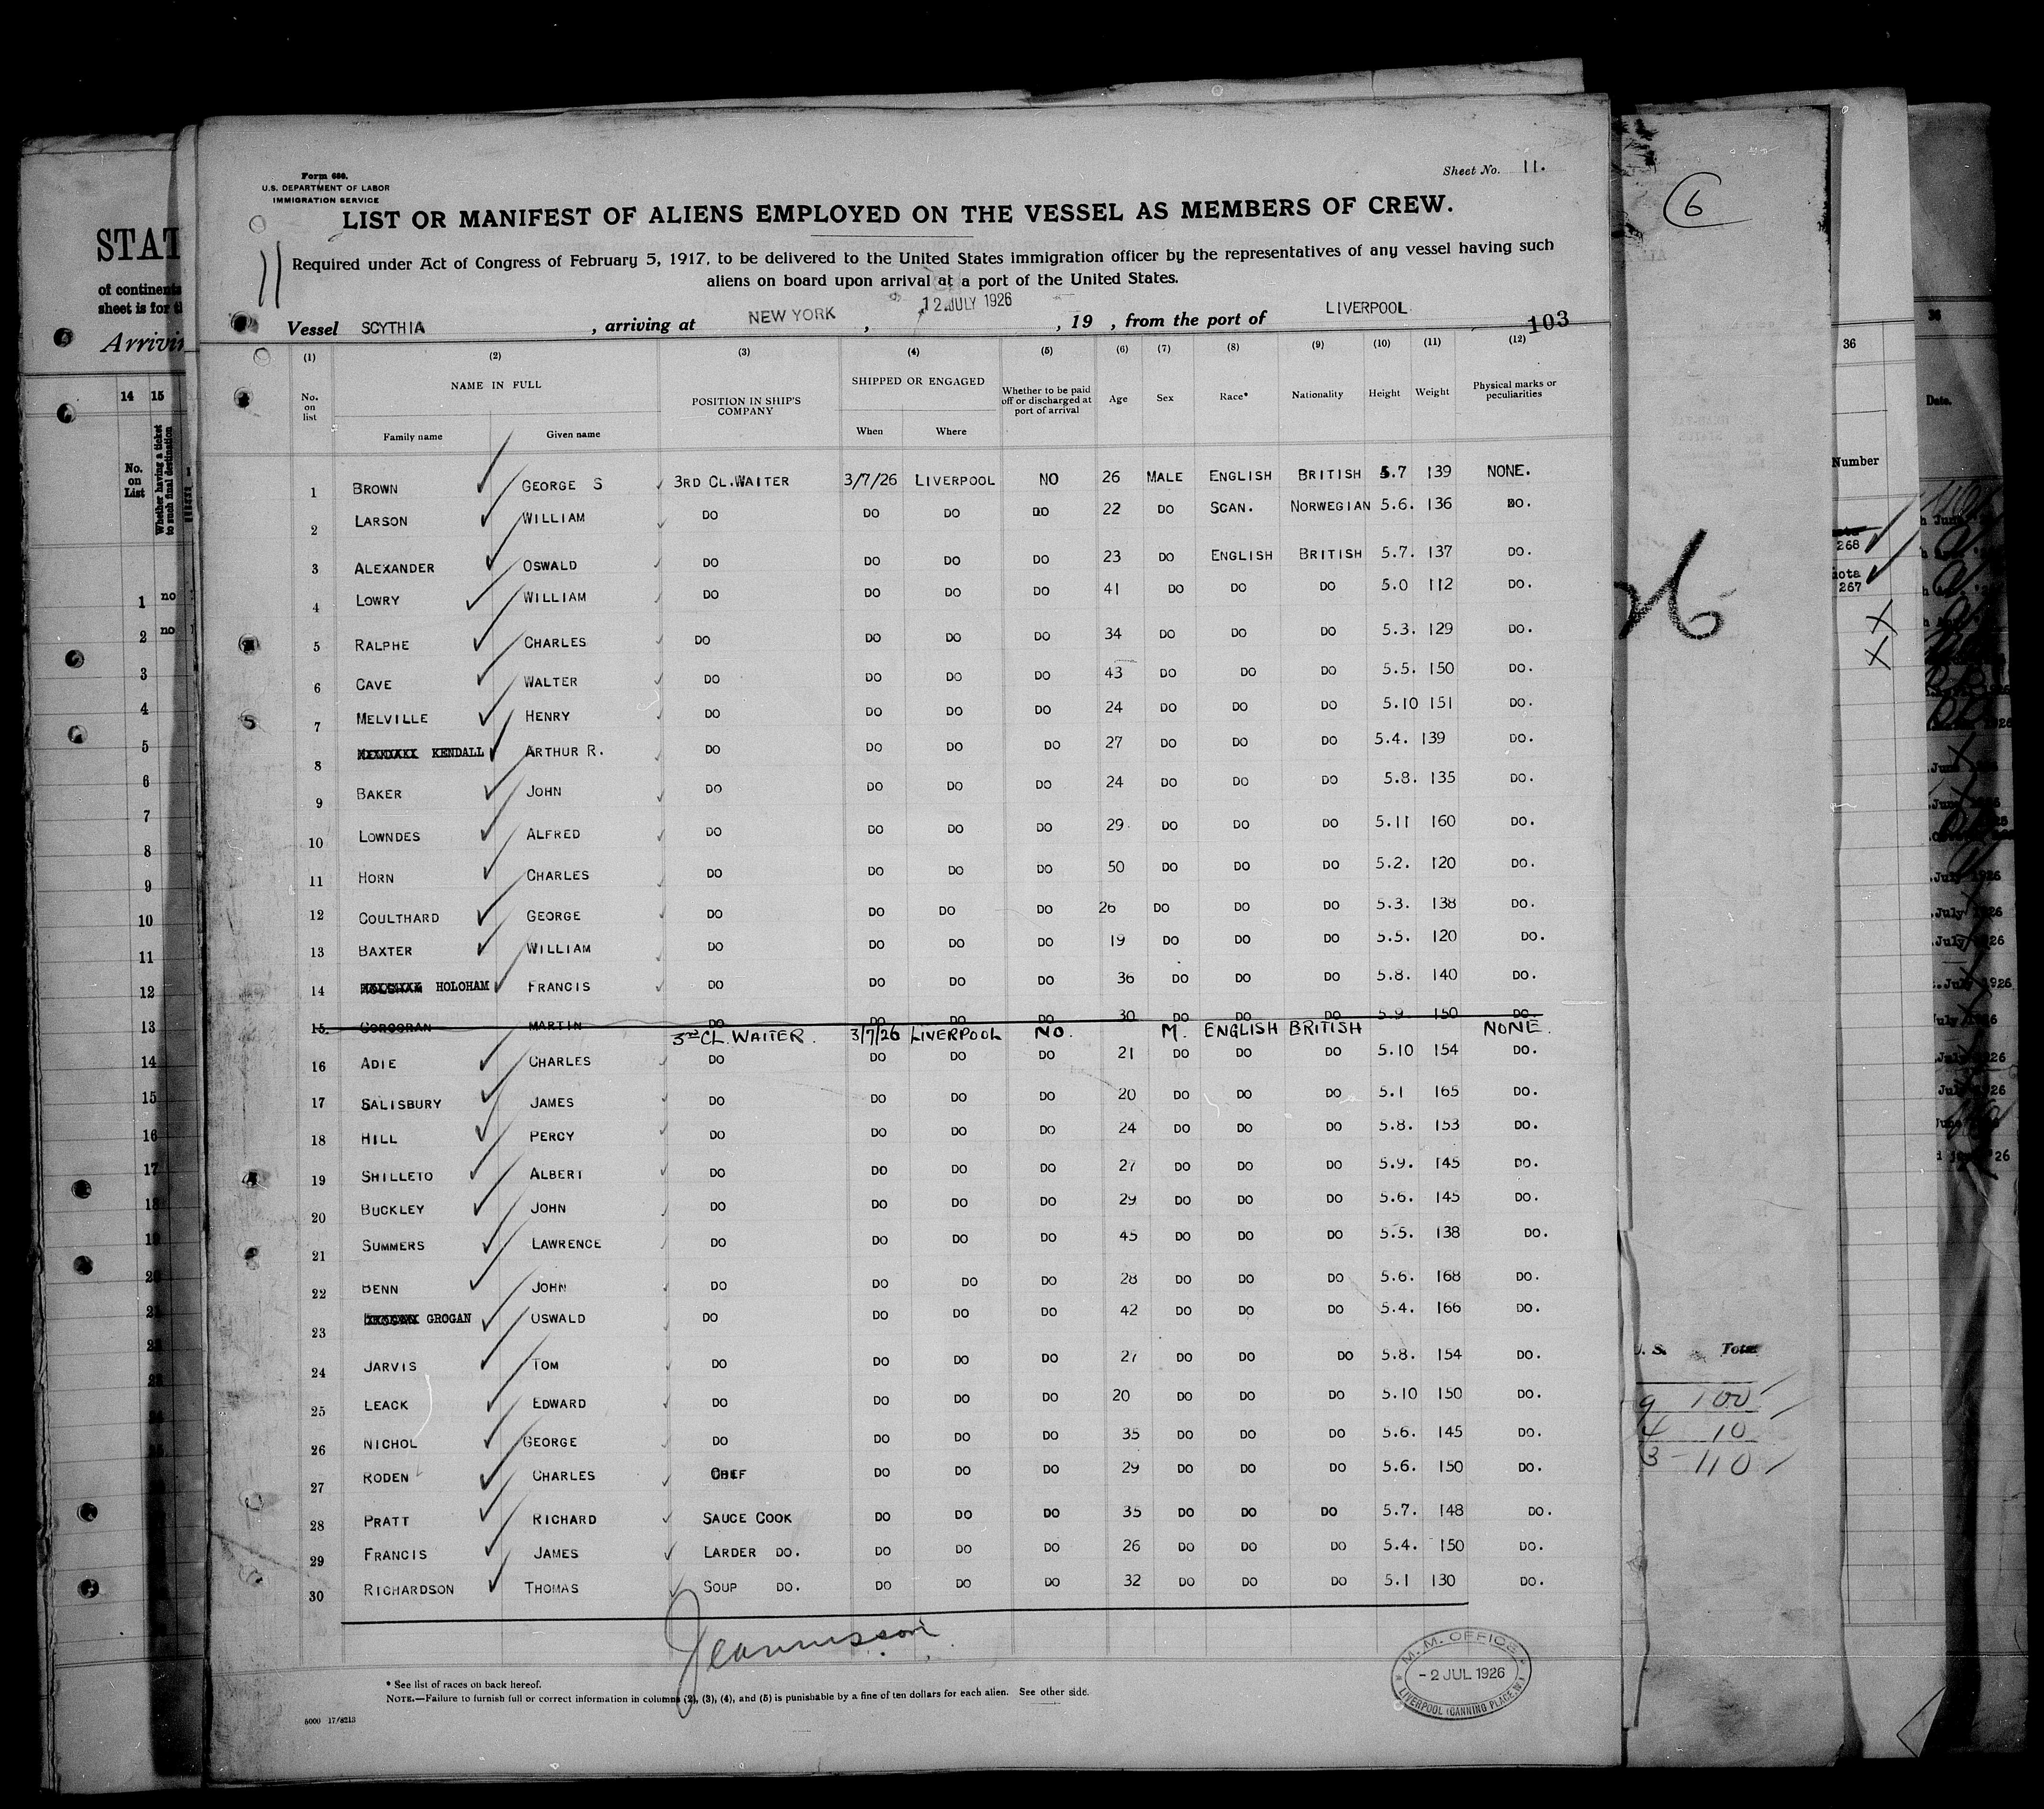 Form 680.
U.S. DEPARTMENT OF LABOR
IMMIGRATION SERVICE
Sheet No. 11.
LIST OR MANIFEST OF ALIENS EMPLOYED ON THE VESSEL AS MEMBERS OF CREW.
Required under Act of Congress of February 5, 1917, to be delivered to the United States immigration officer by the representatives of any vessel having such
aliens on board upon arrival at a port of the United States.
Vessel SCYTHIA , arriving at NEW YORK , 12 JULY 1926 , 19 , from the port of LIVERPOOL 103
(1) (2) (3) (4) (5) (6) (7) (8) (9) (10) (11) (12)
No. on list NAME IN FULL Family name Given name POSITION IN SHIP'S COMPANY SHIPPED OR ENGAGED When Where Whether to be paid off or discharged at port of arrival Age Sex Race* Nationality Height Weight Physical marks or peculiarities
1 BROWN GEORGE S 3RD CL.WAITER 3/7/26 LIVERPOOL NO 26 MALE ENGLISH BRITISH 5.7 139 NONE.
2 LARSON WILLIAM DO DO DO DO 22 DO SCAN. NORWEGIAN 5.6. 136 DO.
3 ALEXANDER OSWALD DO DO DO DO 23 DO ENGLISH BRITISH 5.7. 137 DO.
4 LOWRY WILLIAM DO DO DO DO 41 DO DO DO 5.0 112 DO.
5 RALPHE CHARLES DO DO DO DO 34 DO DO DO 5.3. 129 DO.
6 CAVE WALTER DO DO DO DO 43 DO DO DO 5.5. 150 DO.
7 MELVILLE HENRY DO DO DO DO 24 DO DO DO 5.10 151 DO.
8 KENDALL ARTHUR R. DO DO DO DO 27 DO DO DO 5.4. 139 DO.
9 BAKER JOHN DO DO DO DO 24 DO DO DO 5.8. 135 DO.
10 LOWNDES ALFRED DO DO DO DO 29 DO DO DO 5.11 160 DO.
11 HORN CHARLES DO DO DO DO 50 DO DO DO 5.2. 120 DO.
12 COULTHARD GEORGE DO DO DO DO 26 DO DO DO 5.3. 138 DO.
13 BAXTER WILLIAM DO DO DO DO 19 DO DO DO 5.5. 120 DO.
14 HOLOHAM FRANCIS DO DO DO DO 36 DO DO DO 5.8. 140 DO.
15 CORCORAN MARTIN DO DO DO DO 30 DO DO DO 5.9 150 DO.
3RD CL. WAITER. 3/7/26 LIVERPOOL NO. M. ENGLISH BRITISH NONE.
16 ADIE CHARLES DO DO DO DO 21 DO DO DO 5.10 154 DO.
17 SALISBURY JAMES DO DO DO DO 20 DO DO DO 5.1 165 DO.
18 HILL PERCY DO DO DO DO 24 DO DO DO 5.8. 153 DO.
19 SHILLETO ALBERT DO DO DO DO 27 DO DO DO 5.9. 145 DO.
20 BUCKLEY JOHN DO DO DO DO 29 DO DO DO 5.6. 145 DO.
21 SUMMERS LAWRENCE DO DO DO DO 45 DO DO DO 5.5. 138 DO.
22 BENN JOHN DO DO DO DO 28 DO DO DO 5.6. 168 DO.
23 GROGAN OSWALD DO DO DO DO 42 DO DO DO 5.4. 166 DO.
24 JARVIS TOM DO DO DO DO 27 DO DO DO 5.8. 154 DO.
25 LEACK EDWARD DO DO DO DO 20 DO DO DO 5.10 150 DO.
26 NICHOL GEORGE DO DO DO DO 35 DO DO DO 5.6. 145 DO.
27 RODEN CHARLES CHEF DO DO DO 29 DO DO DO 5.6. 150 DO.
28 PRATT RICHARD SAUCE COOK DO DO DO 35 DO DO DO 5.7. 148 DO.
29 FRANCIS JAMES LARDER DO. DO DO DO 26 DO DO DO 5.4. 150 DO.
30 RICHARDSON THOMAS SOUP DO. DO DO DO 32 DO DO DO 5.1 130 DO.
M. M. OFFICE
-2 JUL 1926
LIVERPOOL (CANNING PLACE, N.)
* See list of races on back hereof.
NOTE.—Failure to furnish full or correct information in columns (2), (3), (4), and (5) is punishable by a fine of ten dollars for each alien. See other side.
5000 17/8213
STAT
of continents
sheet is for t
Arrivin
14 15
No. on List
Whether having a ticket to such final destination
6
26
U. S. Total
9 100
4 10
3 110
36
Number
268
267
36
Date.